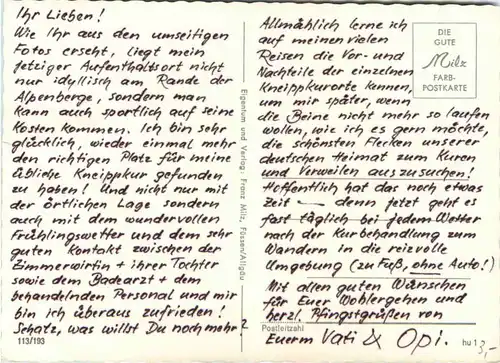 Ihr Lieben!
Wie Ihr aus den umseitigen
Fotos erseht, liegt mein
jetziger Aufenthaltsort nicht
nur idyllisch am Rande der
Alpenberge, sondern man
kann auch sportlich auf seine
Kosten kommen. Ich bin sehr
glücklich, wieder einmal mehr
den richtigen Platz für meine
übliche Kneippkur gefunden
zu haben! Und nicht nur mit
der örtlichen Lage sondern
auch mit dem wundervollen
Frühlingswetter und dem sehr
guten Kontakt zwischen der
Zimmerwirtin + ihrer Tochter
sowie dem Badearzt + dem
behandelnden Personal und mir
bin ich überaus zufrieden!
Schatz, was willst Du noch mehr?
113/193
Eigentum und Verlag: Franz Milz, Füssen/Allgäu
DIE
GUTE
Milz
FARB-
POSTKARTE
Allmählich lerne ich
auf meinen vielen
Reisen die Vor- und
Nachteile der einzelnen
Kneippkurorte kennen,
um mir später, wenn
die Beine nicht mehr so laufen
wollen, wie ich es gern möchte,
die schönsten Flecken unserer
deutschen Heimat zum Kuren
und Verweilen auszusuchen!
Hoffentlich hat das noch etwas
Zeit — denn jetzt geht es
fast täglich bei jedem Wetter
nach der Kurbehandlung zum
Wandern in die reizvolle
Umgebung (zu Fuß, ohne Auto!)
Mit allen guten Wünschen
für Euer Wohlergehen und
herzl. Pfingstgrüßen von
Postleitzahl
Euerm Vati & Opi.
hu 1 3,-